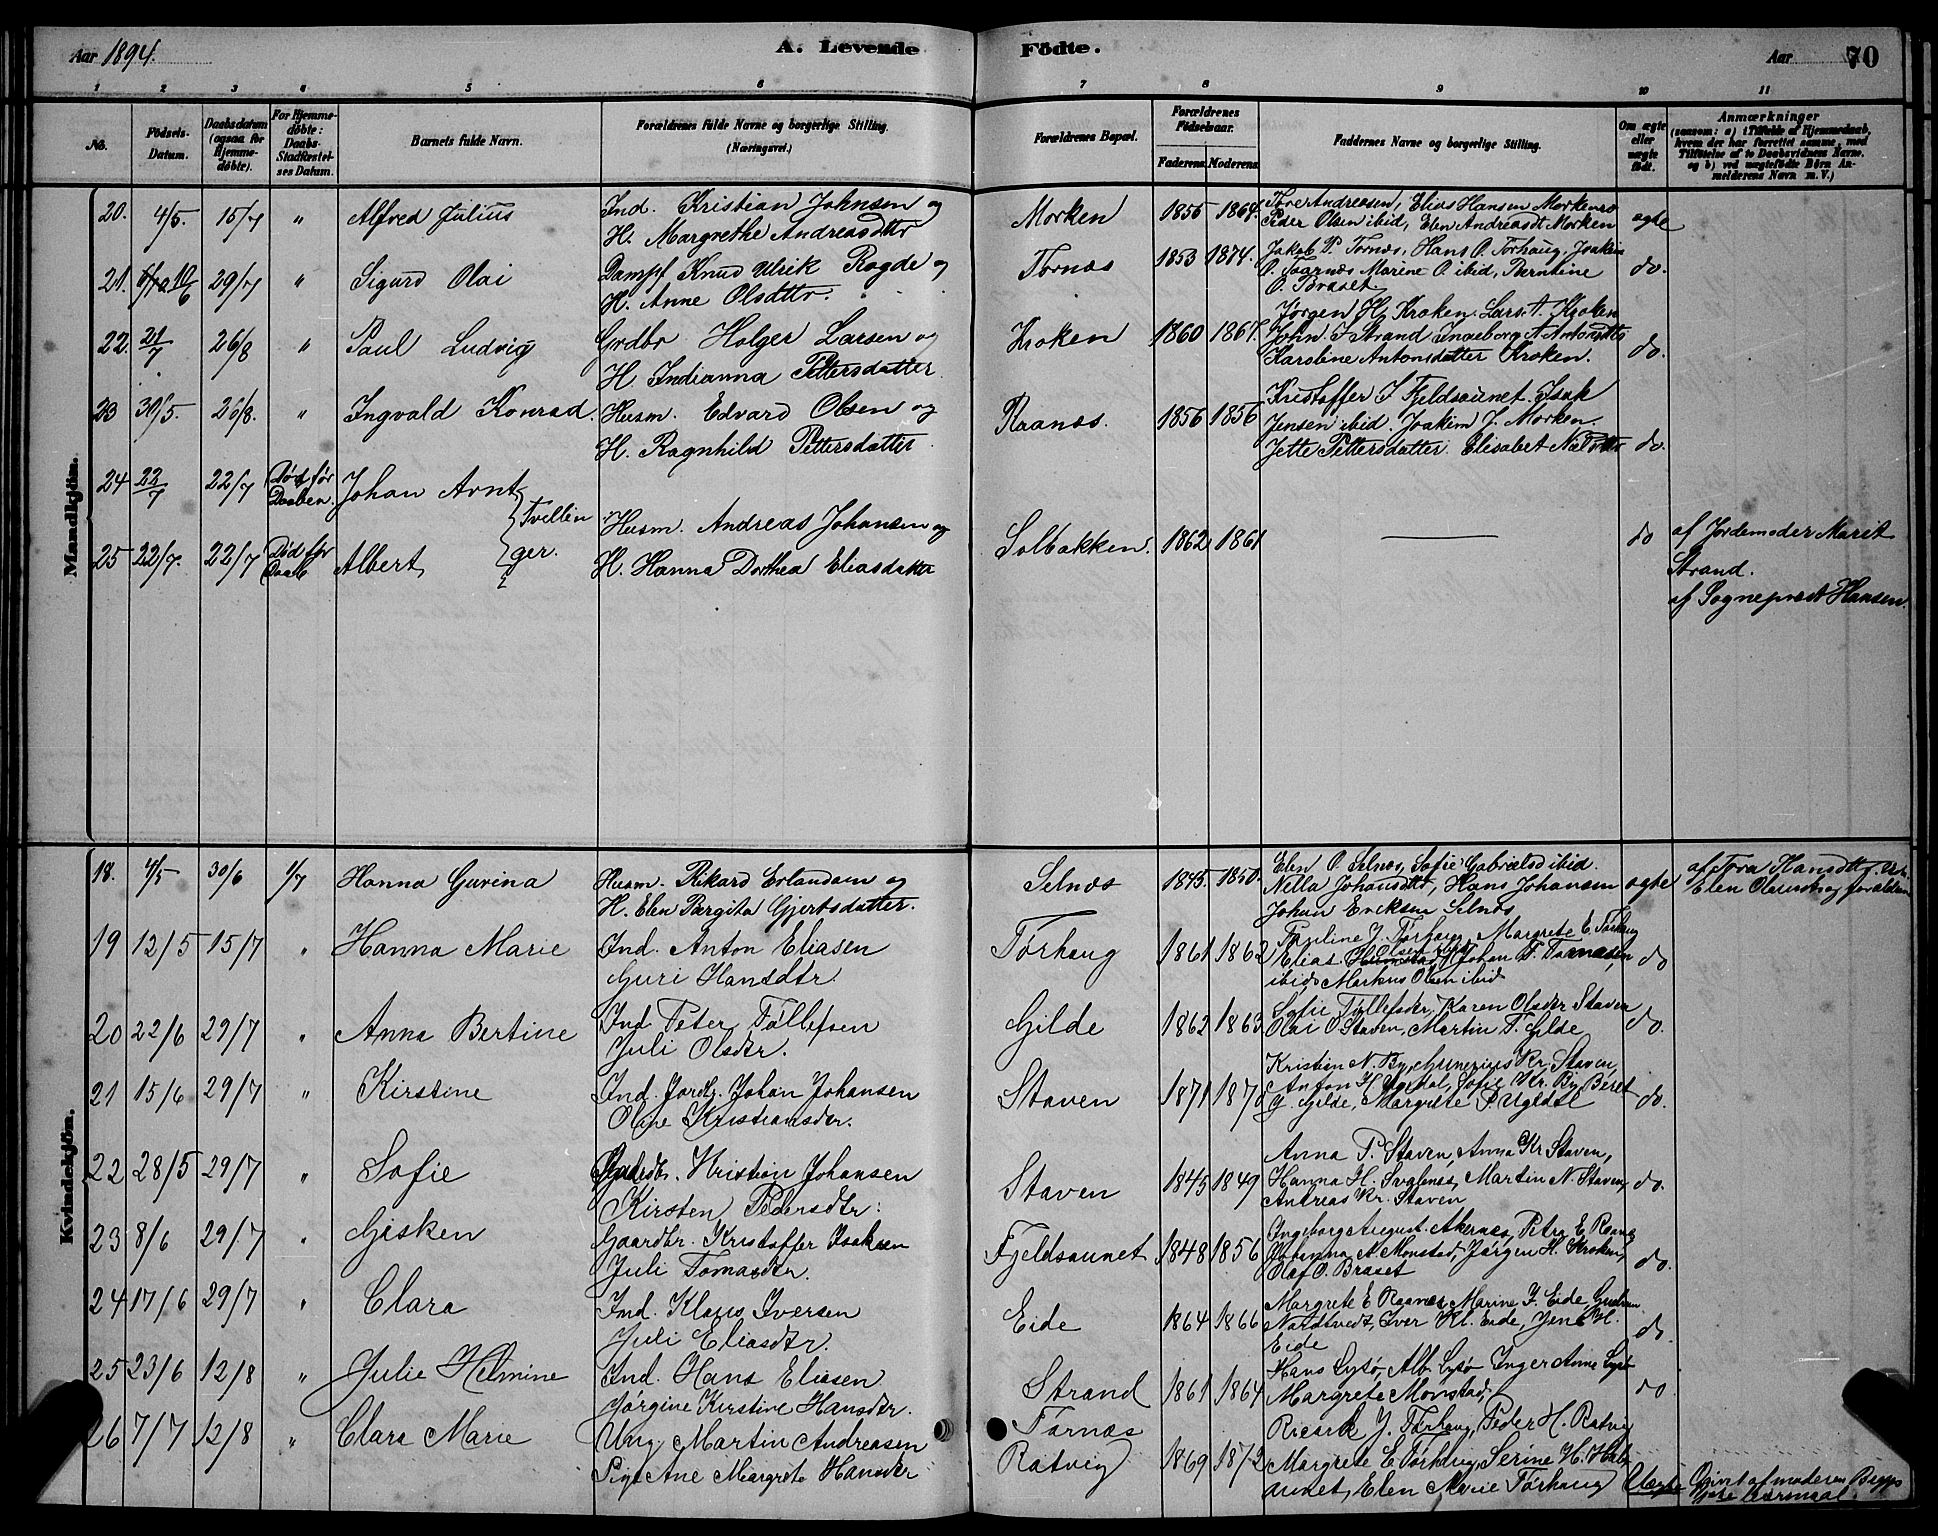 Aar 1894.
A. Levende Födte.
Aar 70
1 2 3 4 5 6 7 8 9 10 11
No. Födsels-Datum. Daabsdatum (ogsaa for Hjemme-døbte). For Hjemme-døbte: Daabs-Stadfæstel-ses Datum. Barnets fulde Navn. Forældrenes fulde Navne og borgerlige Stilling. (Næringsvei.) Forældrenes Bopæl. Forældrenes Födselsaar. Faderens. Moderens. Faddernes Navne og borgerlige Stilling. Om ægte eller uægte født. Anmærkninger
(saasom: a) i Tilfælde af Hjemmedaab, hvem der har forrettet samme, med Tilföielse af to Daabsvidners Navne, og b) ved uægtefödte Börn An-melderens Navn m. V.)
Mandkjön.
20. 4/5. 15/7 " Alfred Julius Ind. Kristian Johnsen og
H. Margrethe Andreasdttr Morken 1855 1864. Tore Andreasen, Elias Hansen Morken
Peder Olsen ibid, Elen Andreasdt Morken ægte
21. 10/6 29/7 " Sigurd Olai Dampf. Knud Ulrik Rogde og
H. Anne Olsdttr. Tornæs 1853 1874. Jakob P. Tornæs, Hans O. Torhaug, Joakim
O. Taarnæs Marine O ibid, Berntine
O. Braset do.
22. 21/7 26/8 " Paul Ludvig Grdbr Holger Larsen og
H. Indianna Pettersdatter Kroken 1860 1867. Jørgen H. Kroken. Lars A. Kroken
John J Strand Ingeborg A Antonsdtr
Karoline Antonsdatter Kroken. do.
23 30/5. 26/8. " Ingvald Konrad. Husm. Edvard Olsen og
H. Ragnhild Pettersdatter Raanæs. 1856 1856 Kristoffer I Fjeldsaunet. Isak
Jensen ibid. Joakim J. Morken.
Jette Pettersdatter Elisabet do.
24 22/7 22/7 Død før Daaben. Johan Arnt
25 22/7. 22/7 Død før Daab Albert
Tvillin
ger.
Husm. Andreas Johansen og
H. Hanna Dorthea Eliasdatter Solbakken. 1862 1861 do af Jordemoder Marit
Strand.
af Sogneprest Hansen.
Kvindekjön.
18. 4/5 30/6 1/7 Hanna Gurina Husm. Rikard Erlandsen og
H. Elen Bergita Gjertsdatter. Selnæs 1845. 1850. Elen O. Selnæs, Sofie Gabrielsd ibid.
Nella Johansdtr, Hans Johansen
Johan Eriksen Selnæs ægte af Tora Hansdtr.
Elen Olausdtr og forældrene
19 12/5 15/7 " Hanna Marie Ind. Anton Eliasen
Guri Hansdtr. Torhaug 1861 1862 Pauline J. Torhaug, Margrete E. Torhaug
Elias Olsen ibid Johan T. Tomasen,
ibid, Markus Olsen ibid do
20 22/6 29/7 " Anna Bertine Ind Peter Tøllefsen
Juli Olsdtr. Gilde 1862 1863 Sofie Tøllefsdtr, Karen Olsdtr Staven
Olai O Staven, Martin T. Gilde do.
21 15/6 29/7 " Kirstine Ind. Jordbr. Johan Johansen
Oline Kristiansdtr. Staven 1871 1870 Kristian N. By, Gunerius Kr. Staven,
Anton H. Ugedal, Sofie Kr. By, Beret
G. Gilde, Margrete P. Ugedal do.
22 28/5 29/7 " Sofie Gaardbr. Kristian Johansen
Kirsten Pedersdtr. Staven 1845 1849 Anna P. Staven, Anna Kr Staven,
Hanna H. Svalenæs, Martin N. Staven,
Andreas Kr. Staven do.
23 8/6 29/7 " Gjøken Gaardbr. Kristoffer Isaksen
Juli Tomasdtr. Fjeldsaunet 1848 1856 Ingeborg August. Akernæs, Petra E Raanæs
Johanna A Monstad, Jørgen H. Kroken,
Olaf O. Braset do.
24 17/6 29/7 " Clara Ind. Klaus Iversen
Juli Eliasdtr. Eide 1864 1866 Margrete E Raanæs, Marine I. Eide, Gudrun
Nordtvedt, Iver Kl. Eide, Jens H.
Eide do
25 23/6 12/8 " Julie Helmine Ind. Hans Eliasen
Jørgine Kirstine Hansdtr. Strand 1861 1864 Hans Lysø, Alb. Lysø Inger Anne Lysø
Margrete Monstad, do
26 7/7 12/8 " Clara Marie Ung. Martin Andreasen
Pige Ane Margrete Hansdtr Tornæs
Ratvig 1869 1872 Ricard J. Torhaug, Peder H. Ratvig
Margrete E Torhaug, Serine H.
aunet, Elen Marie Torhaug Uægte Opgivet af moderen